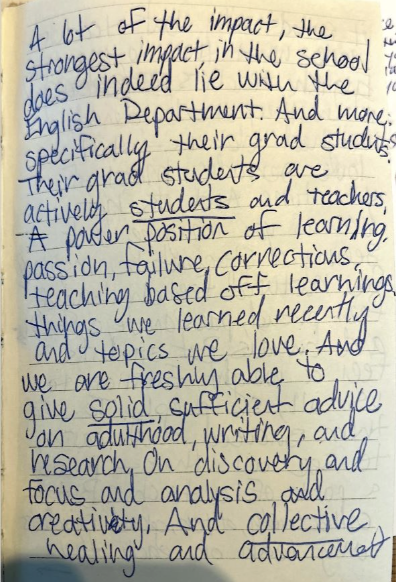 A lot of the impact, the
strongest impact in the school
does indeed lie with the
English Department. And more
specifically their grad students.
Their grad students are
actively students and teachers.
A power position of learning,
passion, failure, corrections,
teaching based off learnings,
things we learned recently
and topics we love. And
we are freshly able to
give solid, sufficient advice
on adulthood, writing, and
research. On discovery and
focus and analysis and
creativity. And collective
healing and advancement